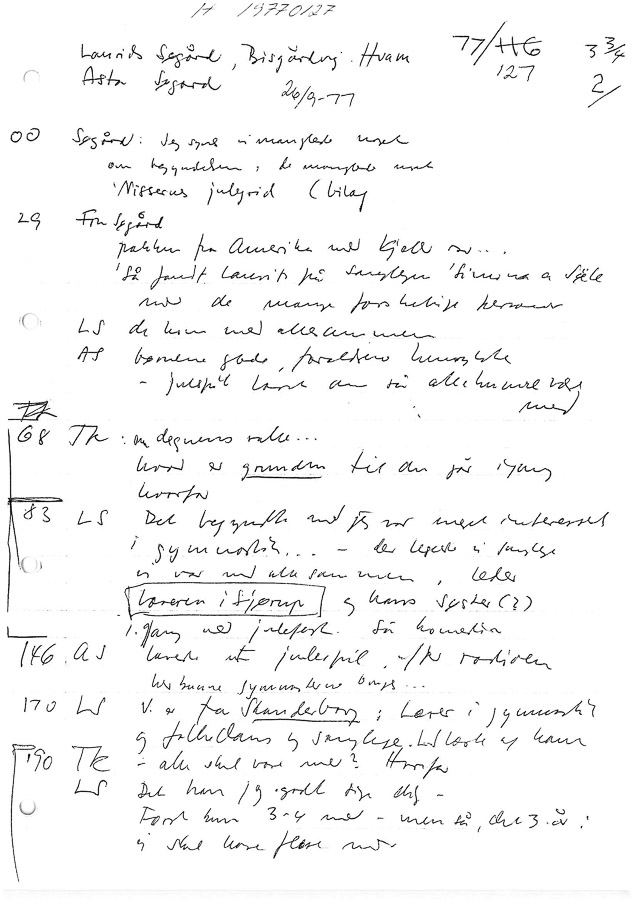 H 19770127
Laurids Søgård, Bisgårdvej. Hvam 77/HG 3 3/4
Asta Søgård 127 2/
26/9-77
00 Søgård: Jeg synes vi manglede noget
om begyndelsen, de manglede noget
'Nissernes julegrød (bilag
29 Fru Søgård
pakken fra Amerika med kjoler
'Så fandt Laurits på sanglegen
med de mange forskellige personer
LS de kom med allesammen
AS børnene gode, forældrene
- julespil så alle kunne være
med
Tk
68 Tk: om degnens
hvad er grunden til du går igang
hvorfor
83 LS Det begyndte med jeg var meget interesseret
i gymnastik... - der legede vi sanglege
vi var med alle sammen, leder
læreren i Fjerup og hans søster (?)
1. gang ved julefest. Så komedie
146 AS lavede et julespil, radioen
her kunne gymnasterne bruges...
170 LS V. er fra Skanderborg; Lærer i gymnastik
og folkedans og sanglege. af ham
190 Tk - alle skal være med? Hvorfor
LS Det kan jeg godt sige dig -
Først kun 3-4 med - men så, det 3. år:
vi skal have flere med